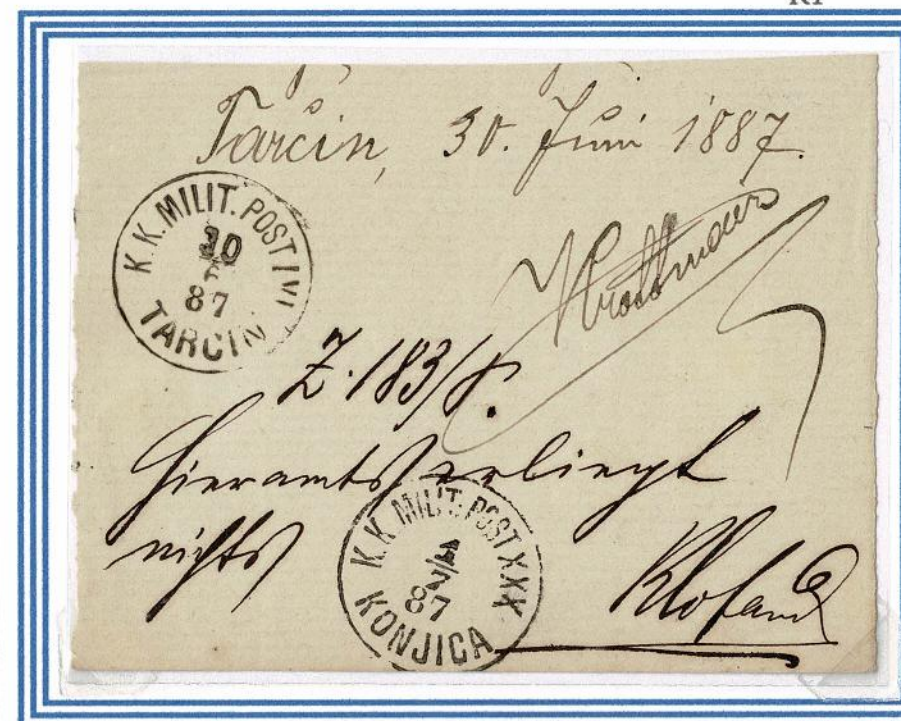 Tarčin, 30. Juni 1887.
K.K. MILIT. POST IVL
30
87
TARCIN
Z. 183/8.
Hieramts erliegt
nichts
K.K. MILIT. POST XXX.
1/7
87
KONJICA